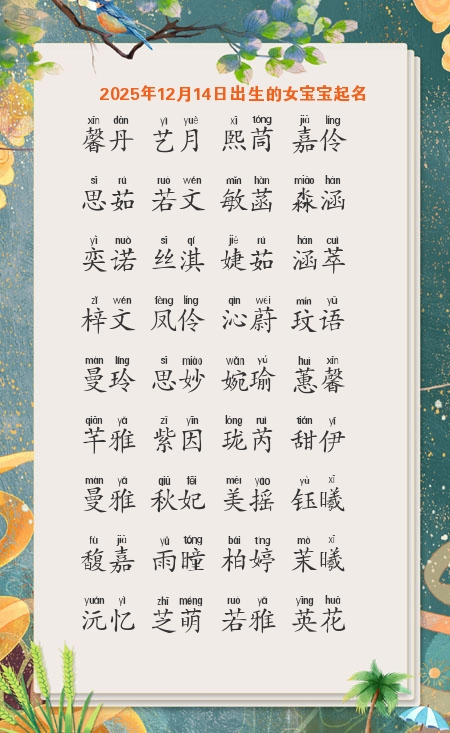 2025年12月14日出生的女宝宝起名
xīn dān yì yuè xī tóng jiā líng
馨丹 艺月 熙茼 嘉伶
sī rú ruò wén mǐn hàn miǎo hán
思茹 若文 敏菡 淼涵
yì nuò sī qí jié rú hán cuì
奕诺 丝淇 婕茹 涵萃
zǐ wén fèng líng qìn wèi mín yǔ
梓文 凤伶 沁蔚 玟语
màn líng sī miào wǎn yú huì xīn
曼玲 思妙 婉瑜 蕙馨
qiān yǎ zǐ yīn lóng ruì tián yī
芊雅 紫因 珑芮 甜伊
màn yǎ qiū fēi měi yáo yù xī
曼雅 秋妃 美摇 钰曦
fù jiā yǔ tóng bǎi tíng mò xī
馥嘉 雨曈 柏婷 茉曦
yuán yì zhī méng ruò yǎ yīng huā
沅忆 芝萌 若雅 英花